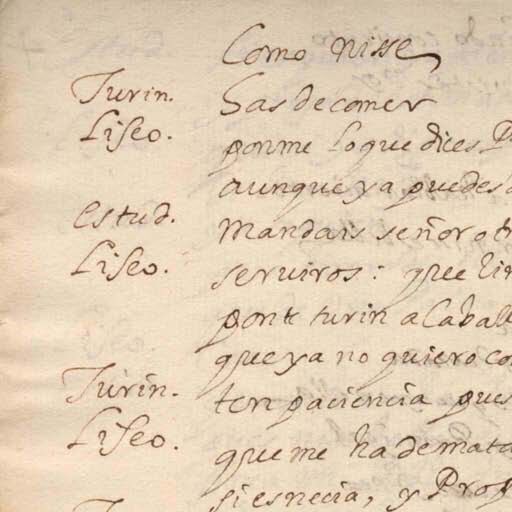 Como nisse
Turin. Has de comer
Liseo. ponme lo que dices
aunque ya puedes
estud. Mandais señor
Liseo. serviros: que
ponte turin a Cabal
que ya no quiero co
Turin. ten paciencia pues
Liseo. que me ha de mata
si es necia, y Pro